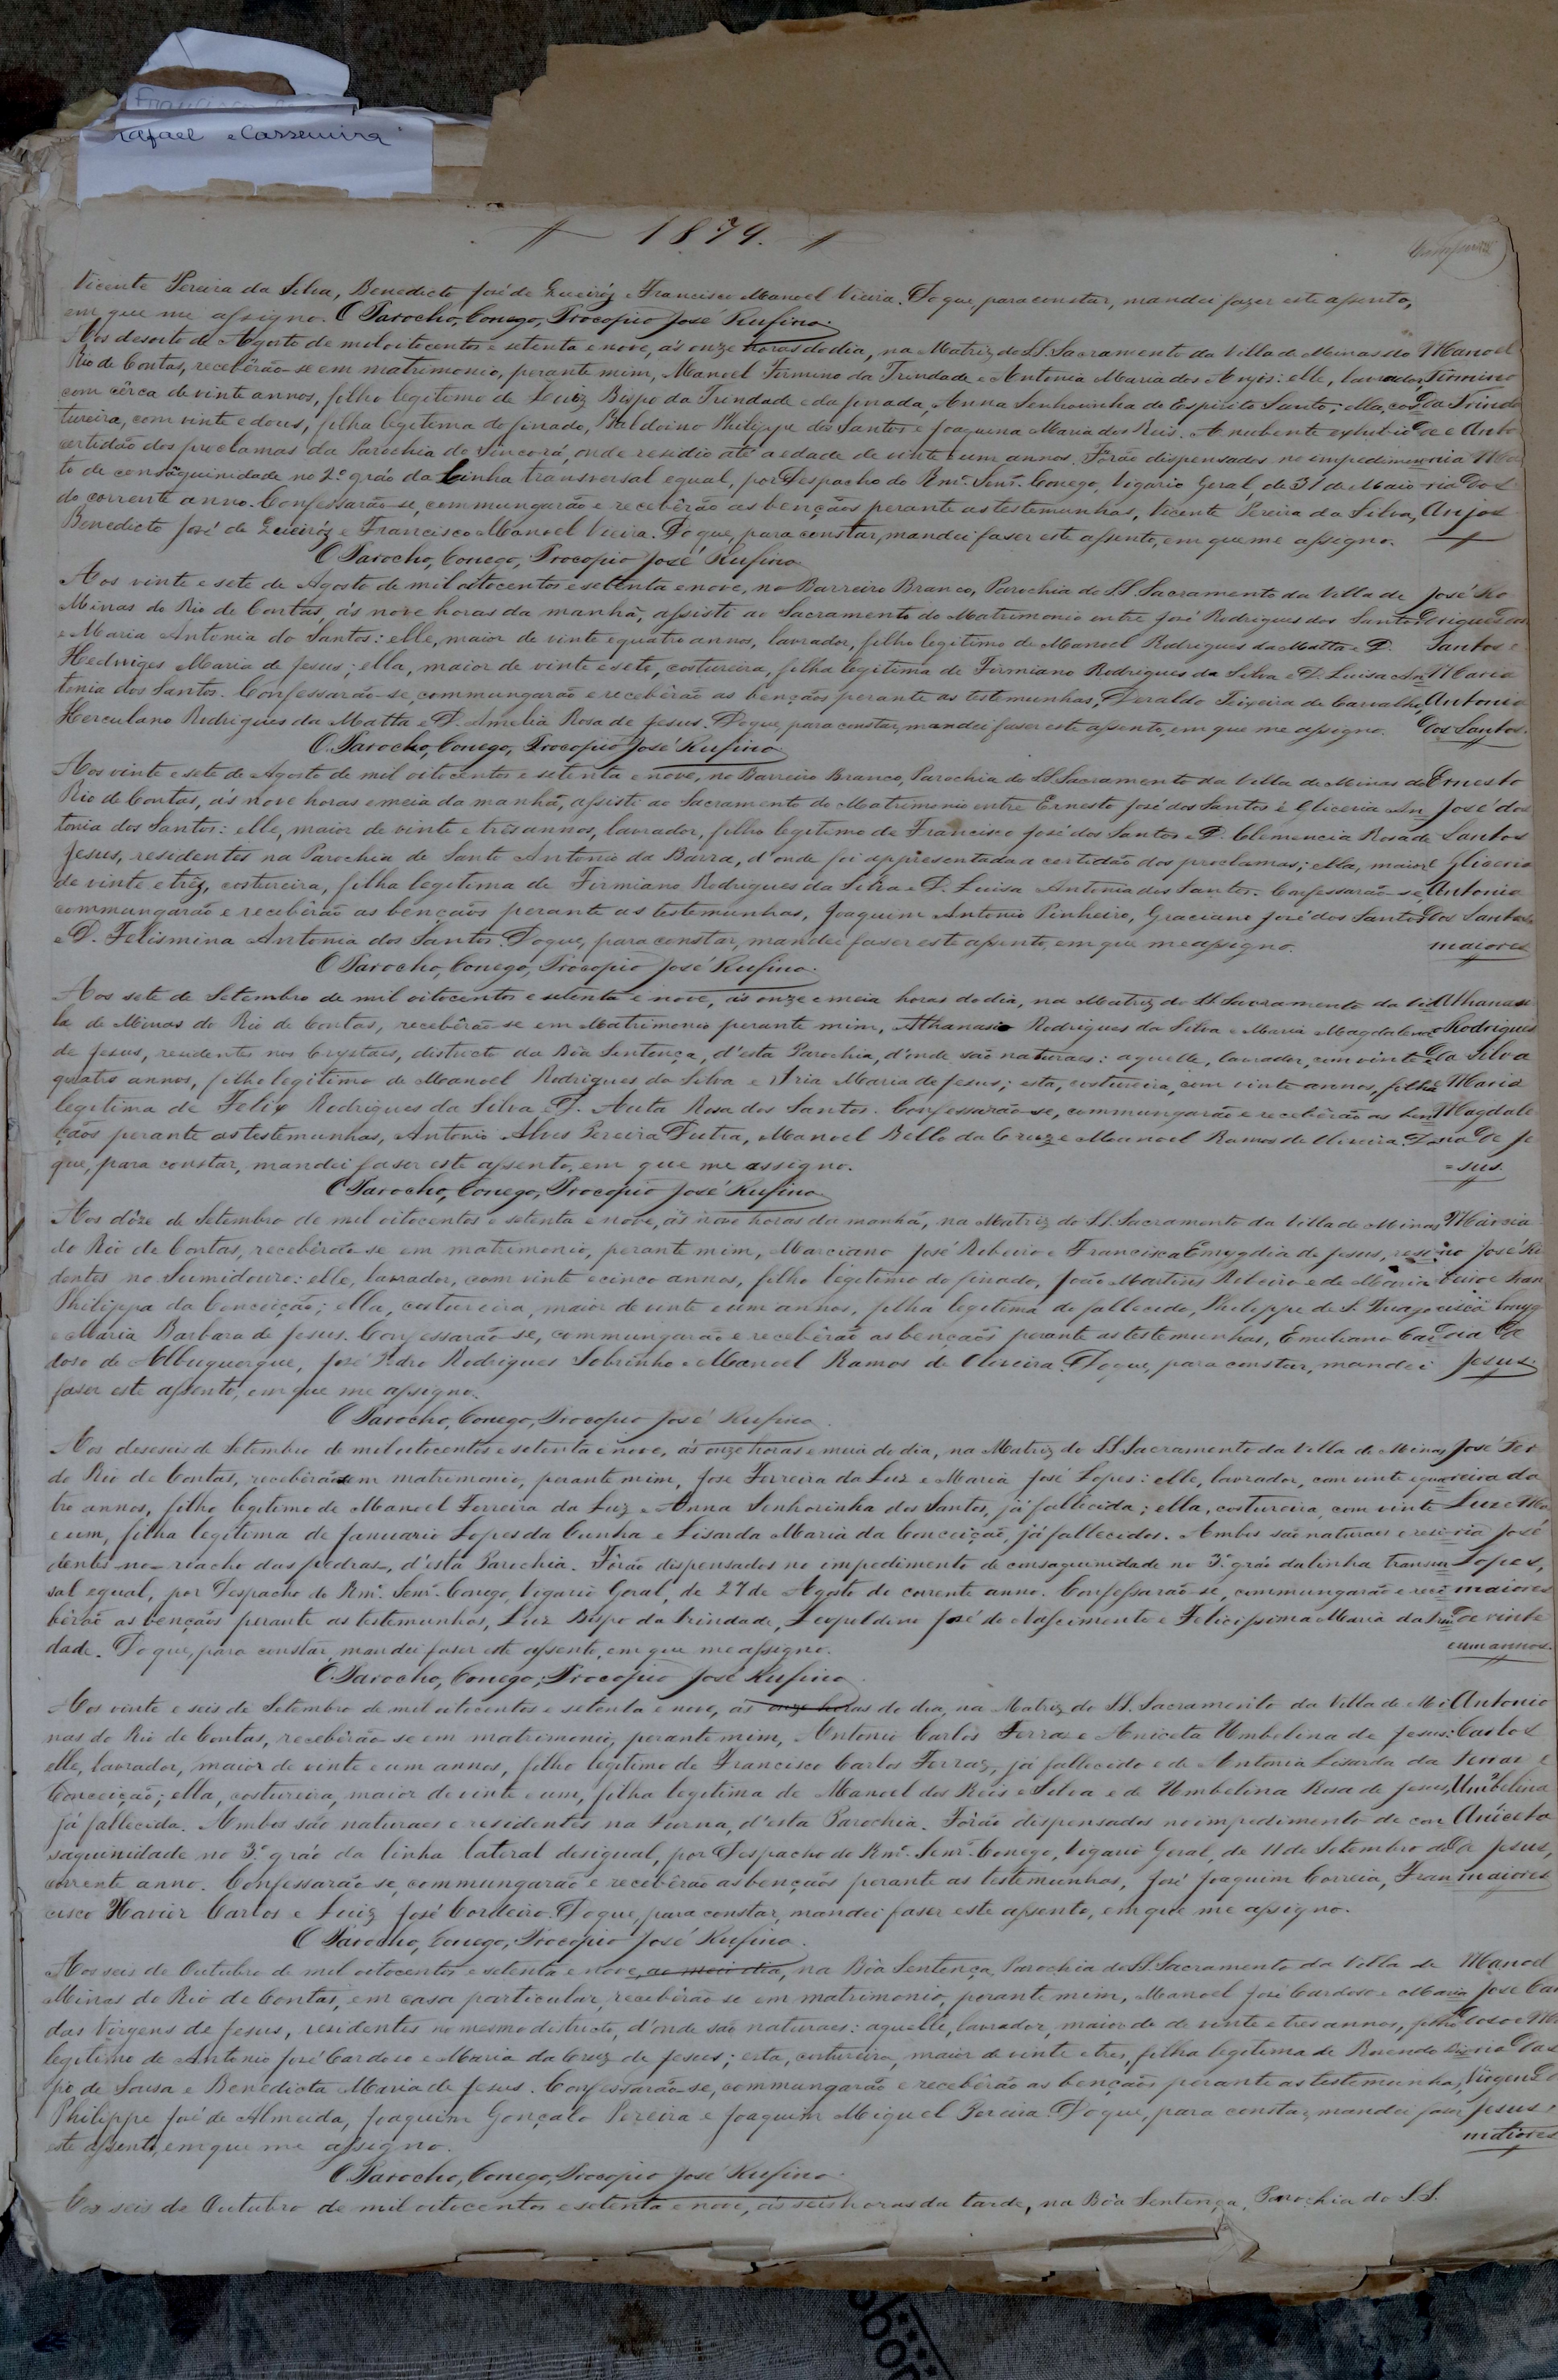 Rafael e Cassemira
1879.
Vicente Pereira da Silva, Benedicto José de Queiróz e Francisco Manoel Vieira. Do que, para constar, mandei fazer este assento,
em que me assigno. O Parocho, Conego, Procopio José Rufino.
Aos desoito de Agosto de mil oitocentos e setenta e nove, ás onze horas do dia, na Matriz do SS. Sacramento da Villa de Minas do
Rio de Contas, recebêrão-se em matrimonio, perante mim, Manoel Firmino da Trindade e Antonia Maria dos Anjos: elle, lavrador,
com cêrca de vinte annos, filho legitimo de Luiz Bispo da Trindade e da finada, Anna Senhorinha do Espirito Santo; ella, cos
tureira, com vinte e dous, filha legitima do finado, Baldoino Philippe dos Santos e Joaquina Maria dos Reis. A nubente exhibio
certidão dos proclamas da Parochia do Sincorá, onde residio até a edade de vinte e um annos. Fôrão dispensados no impedimen
to de consãguinidade no 2º gráo da Linha transversal egual, por Despacho do Rmº. Senr. Conego, Vigario Geral, de 31 de Maio
do corrente anno. Confessarão-se, commungarão e recebêrão as bençãos perante as testemunhas, Vicente Pereira da Silva,
Benedicto José de Queiróz e Francisco Manoel Vieira. Do que, para constar, mandei faser este assento, em que me assigno.
O Parocho, Conego, Procopio José Rufino
Manoel
Firmino
da Trinda
de e Anto
nia Ma
ria dos
Anjos
Aos vinte e sete de Agosto de mil oitocentos e setenta e nove, no Barreiro Branco, Parochia do SS. Sacramento da Villa de
Minas do Rio de Contas, ás nove horas da manhã, assisti ao Sacramento do Matrimonio entre José Rodrigues dos Santos
e Maria Antonia dos Santos: elle, maior de vinte e quatro annos, lavrador, filho legitimo de Manoel Rodrigues da Matta e D.
Hedwiges Maria de Jesus; ella, maior de vinte e sete, costureira, filha legitima de Firmiano Rodrigues da Silva e D. Luisa An
tonia dos Santos. Confessarão-se, commungarão e recebêrão as bençãos perante as testemunhas, Deraldo Teixeira de Carvalho,
Herculano Rodrigues da Matta e D. Amelia Rosa de Jesus. Do que, para constar, mandei faser este assento, em que me assigno.
O Parocho, Conego, Procopio José Rufino
José Ro
drigues dos
Santos e
Maria
Antonia
dos Santos.
Aos vinte e sete de Agosto de mil oitocentos e setenta e nove, no Barreiro Branco, Parochia do SS. Sacramento da Villa de Minas do
Rio de Contas, ás nove horas e meia da manhã, assisti ao Sacramento do Matrimonio entre Ernesto José dos Santos e Gliceria An
tonia dos Santos: elle, maior de vinte e três annos, lavrador, filho legitimo de Francisco José dos Santos e D. Clemencia Rosa de
Jesus, residentes na Parochia de Santo Antonio da Barra, d'onde foi appresentada a certidão dos proclamas; ella, maior
de vinte e trêz, costureira, filha legitima de Firmiano Rodrigues da Silva e D. Luisa Antonia dos Santos. Confessarão-se,
commungarão e recebêrão as bençãos perante as testemunhas, Joaquim Antonio Pinheiro, Graciano José dos Santos
e D. Felismina Antonia dos Santos. Do que, para constar, mandei faser este assento, em que me assigno.
O Parocho, Conego, Procopio José Rufino.
Ernesto
José dos
Santos
e Gliceria
Antonia
dos Santos
maiores
Aos sete de Setembro de mil oitocentos e setenta e nove, ás onze e meia horas do dia, na Matriz do SS. Sacramento da Vil
la de Minas do Rio de Contas, recebêrão-se em Matrimonio perante mim, Athanasio Rodrigues da Silva e Maria Magdalena
de Jesus, residentes nos Crystaes, districto da Bôa Sentença, d'esta Parochia, d'onde são naturaes: aquelle, lavrador, com vinte e
quatro annos, filho legitimo de Manoel Rodrigues da Silva e Iria Maria de Jesus; esta, costureira, com vinte annos, filha
legitima de Felix Rodrigues da Silva e D. Auta Rosa dos Santos. Confessarão-se, commungarão e recebêrão as ben
çãos perante as testemunhas, Antonio Alves Pereira Dutra, Manoel Bello da Cruz e Manoel Ramos de Oliveira. Do
que, para constar, mandei faser este assento, em que me assigno.
O Parocho, Conego, Procopio José Rufino
Athanasi
o Rodrigues
da Silva
e Maria
Magdale
na de Je
=sus.
Aos dôze de Setembro de mil oitocentos e setenta e nove, ás nove horas da manhã, na Matriz do SS. Sacramento da Villa de Minas
do Rio de Contas, recebêrão-se em matrimonio, perante mim, Marciano José Ribeiro e Francisca Emygdia de Jesus, resi
dentes no Sumidouro: elle, lavrador, com vinte e cinco annos, filho legitimo do finado, João Martins Ribeiro e de Maria
Philippa da Conceição; ella, costureira, maior de vinte e um annos, filha legitima do fallecido, Philippe de S. Thiago
e Maria Barbara de Jesus. Confessarão-se, commungarão e recebêrão as bençãos perante as testemunhas, Emiliano Car
doso de Albuquerque, José Pedro Rodrigues Sobrinho e Manoel Ramos de Oliveira. Do que, para constar, mandei
faser este assento, em que me assigno.
O Parocho, Conego, Procopio José Rufino.
Marcia
no José Ri
beiro e Fran
cisca Emyg
dia de
Jesus.
Aos deseseis de Setembro de mil oitocentos e setenta e nove, ás onze horas e meia do dia, na Matriz do SS. Sacramento da Villa de Minas
do Rio de Contas, recebêrão-se em matrimonio, perante mim, José Ferreira da Luz e Maria José Lopes: elle, lavrador, com vinte e qua
tro annos, filho legitimo de Manoel Ferreira da Luz e Anna Senhorinha dos Santos, já fallecida; ella, costureira, com vinte
e um, filha legitima de Januario Lopes da Cunha e Lisarda Maria da Conceição, já fallecidos. Ambos são naturaes e resi
dentes no - riacho das pedras -, d'esta Parochia. Fôrão dispensados no impedimento de consaguinidade no 3º gráo da linha transver
sal egual, por Despacho do Rmº. Senr. Conego, Vigario Geral, de 27 de Agosto do corrente anno. Confessarão-se, commungarão e rece
bêrão as bençãos perante as testemunhas, Luiz Bispo da Trindade, Leopoldino José do Nascimento e Felicissima Maria da Trin
dade. Do que, para constar, mandei faser este assento, em que me assigno.
O Parocho, Conego, Procopio José Rufino.
José Fer
reira da
Luz e Ma
ria José
Lopes,
maiores
de vinte
e um annos.
Aos vinte e seis de Setembro de mil oitocentos e setenta e nove, ás onze horas do dia, na Matriz do SS. Sacramento da Villa de Mi
nas do Rio de Contas, recebêrão-se em matrimonio, perante mim, Antonio Carlos Ferraz e Aniceta Umbelina de Jesus:
elle, lavrador, maior de vinte e um annos, filho legitimo de Francisco Carlos Ferraz, já fallecido e de Antonia Lisarda da
Conceição; ella, costureira, maior de vinte e um, filha legitima de Manoel dos Reis e Silva e de Umbelina Rosa de Jesus,
já fallecida. Ambos são naturaes e residentes na Furna, d'esta Parochia. Fôrão dispensados no impedimento de con
saguinidade no 3º gráo da linha lateral desigual, por Despacho do Rmº. Senr. Conego, Vigario Geral, de 11 de Setembro do
corrente anno. Confessarão-se, commungarão e recebêrão as bençãos perante as testemunhas, José Joaquim Correia, Fran
cisco Xavier Carlos e Luiz José Cordeiro. Do que, para constar, mandei faser este assento, em que me assigno.
O Parocho, Conego, Procopio José Rufino.
Antonio
Carlos
Ferraz e
Umbelina
Aniceta
de Jesus,
maiores
Aos seis de Outubro de mil oitocentos e setenta e nove, ao meio dia, na Bôa Sentença, Parochia do SS. Sacramento da Villa de
Minas do Rio de Contas, em casa particular, recebêrão-se em matrimonio, perante mim, Manoel José Cardoso e Maria
das Virgens de Jesus, residentes no mesmo districto, d'onde são naturaes: aquelle, lavrador, maior de de vinte e tres annos, filho
legitimo de Antonio José Cardoso e Maria da Cruz de Jesus; esta, costureira, maior de vinte e tres, filha legitima de Rosendo
pio de Sousa e Benedicta Maria de Jesus. Confessarão-se, commungarão e recebêrão as bençãos perante as testemunhas,
Philippe José de Almeida, Joaquim Gonçalo Pereira e Joaquim Miguel Pereira. Do que, para constar, mandei faser
este assento, em que me assigno.
O Parocho, Conego, Procopio José Rufino.
Manoel
José Car
doso e Ma
ria das
Virgens de
Jesus,
maiores
Aos seis de Outubro de mil oitocentos e setenta e nove, ás seis horas da tarde, na Bôa Sentença, Parochia do S.S.